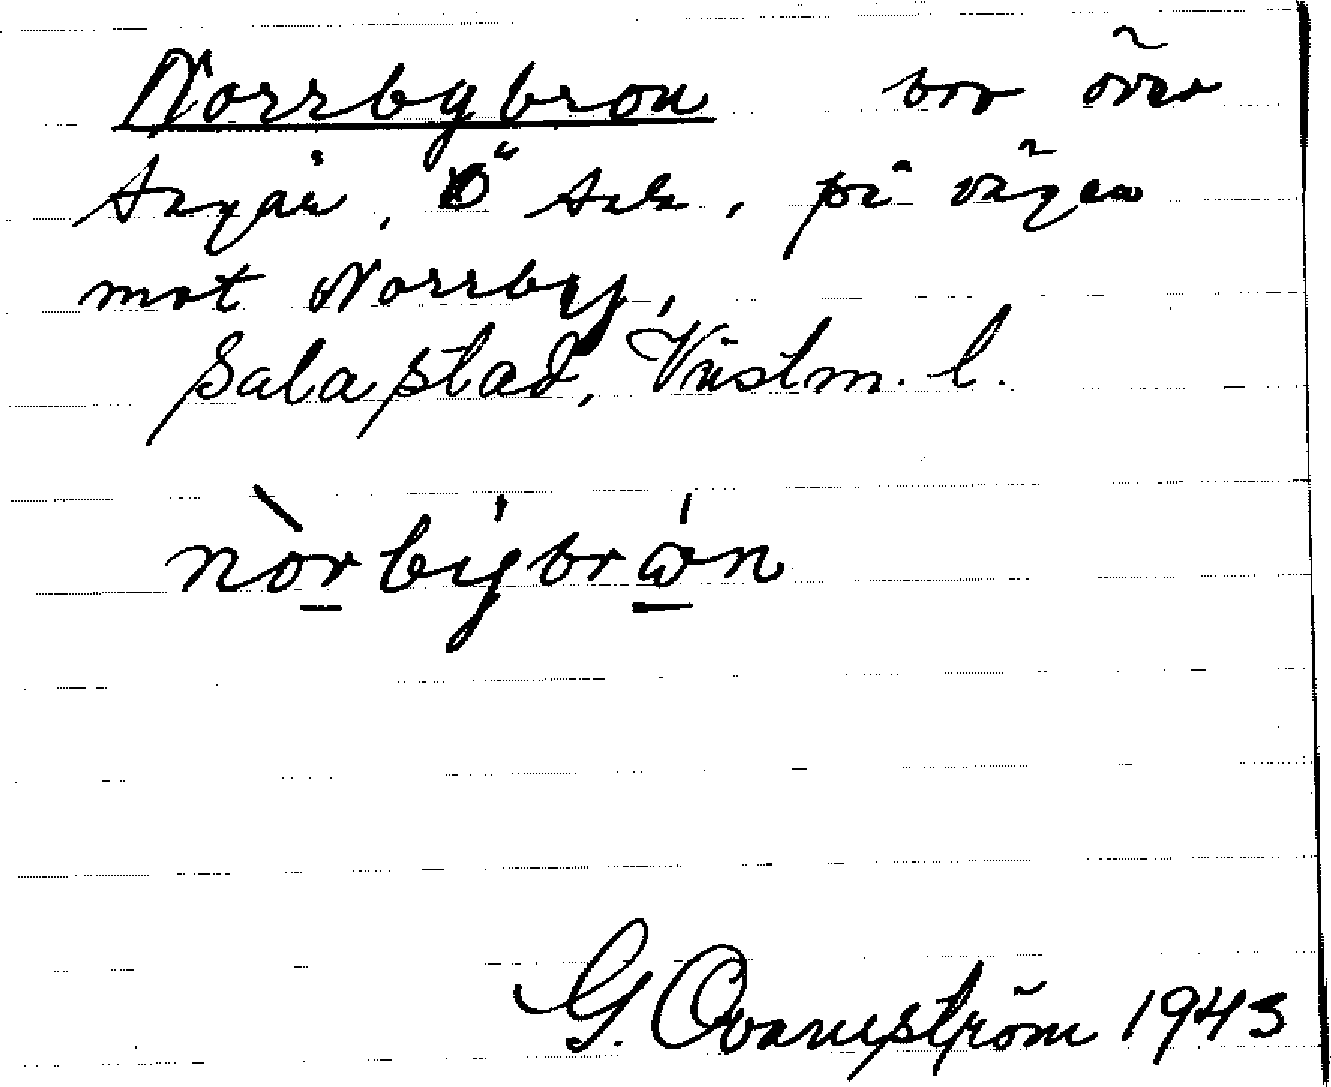 Norrbybron bro över
Sagån, Ö Sala, på vägen
mot Norrby,
Sala stad, Västm. l.
nòrbýbrón
G. Qvarnström 1943